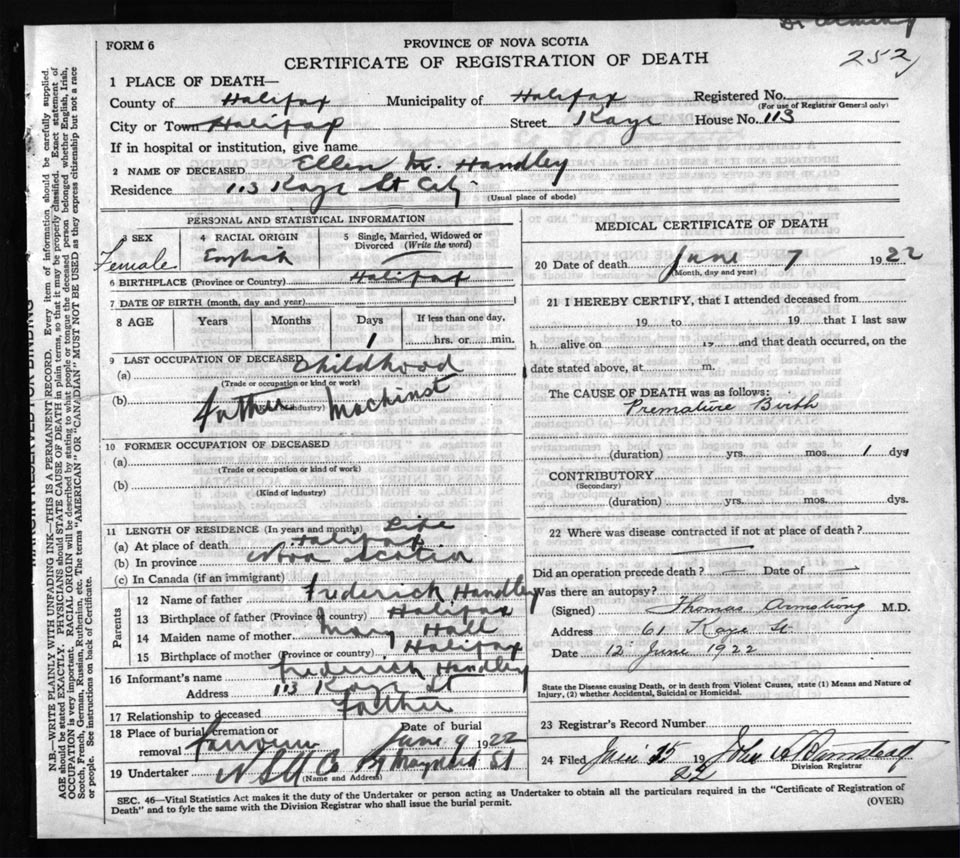 FORM 6
PROVINCE OF NOVA SCOTIA
CERTIFICATE OF REGISTRATION OF DEATH
252
1 PLACE OF DEATH—
County of Halifax Municipality of Halifax Registered No.
(For use of Registrar General only)
City or Town Halifax Street Kaye House No. 113
If in hospital or institution, give name
2 NAME OF DECEASED Ellen M. Handley
Residence 113 Kaye St City
(Usual place of abode)
PERSONAL AND STATISTICAL INFORMATION
3 SEX 4 RACIAL ORIGIN 5 Single, Married, Widowed or Divorced (Write the word)
Female English
6 BIRTHPLACE (Province or Country) Halifax
7 DATE OF BIRTH (month, day and year)
8 AGE Years Months Days If less than one day,
1 hrs. or min.
9 LAST OCCUPATION OF DECEASED Childhood
(a)
(Trade or occupation or kind or work)
(b) father Machinst
10 FORMER OCCUPATION OF DECEASED
(a)
(Trade or occupation or kind of work)
(b)
(Kind of industry)
11 LENGTH OF RESIDENCE (In years and months) Life
(a) At place of death Halifax
(b) In province Nova Scotia
(c) In Canada (if an immigrant)
Parents
12 Name of father Frederick Handley
13 Birthplace of father (Province or country) Halifax
14 Maiden name of mother Mary Hall
15 Birthplace of mother (Province or country) Halifax
16 Informant's name Frederick Handley
Address 113 Kaye St
17 Relationship to deceased Father
18 Place of burial, cremation or removal Fairview Date of burial June 9 1922
19 Undertaker N S U Co Maynard St
(Name and Address)
MEDICAL CERTIFICATE OF DEATH
20 Date of death June 7 1922
(Month, day and year)
21 I HEREBY CERTIFY, that I attended deceased from
19 to 19 that I last saw
h alive on 19 and that death occurred, on the
date stated above, at m.
The CAUSE OF DEATH was as follows:
Premature Birth
(duration) yrs. mos. 1 dys
CONTRIBUTORY
(Secondary)
(duration) yrs. mos. dys.
22 Where was disease contracted if not at place of death?
Did an operation precede death? — Date of —
Was there an autopsy?
(Signed) Thomas Armstrong M.D.
Address 61 Kaye St
Date 12 June 1922
State the Disease causing Death, or in death from Violent Causes, state (1) Means and Nature of
Injury, (2) whether Accidental, Suicidal or Homicidal.
23 Registrar's Record Number
24 Filed June 15 1922 John
Division Registrar
SEC. 46—Vital Statistics Act makes it the duty of the Undertaker or person acting as Undertaker to obtain all the particulars required in the "Certificate of Registration of
Death" and to fyle the same with the Division Registrar who shall issue the burial permit.
(OVER)
MARGIN RESERVED FOR BINDING
N.B.—WRITE PLAINLY WITH UNFADING INK—THIS IS A PERMANENT RECORD. Every item of information should be carefully supplied.
AGE should be stated EXACTLY. PHYSICIANS should STATE CAUSE OF DEATH in plain terms, so that it may be properly classified. Exact statement of
OCCUPATION is very important. RACIAL ORIGIN will be described by stating to what people or tongue the deceased person belonged whether English, Irish,
Scotch, French, German, Russian, Ruthenian, etc. The terms "AMERICAN" OR "CANADIAN" MUST NOT BE USED as they express citizenship but not a race
or people. See instructions on back of Certificate.